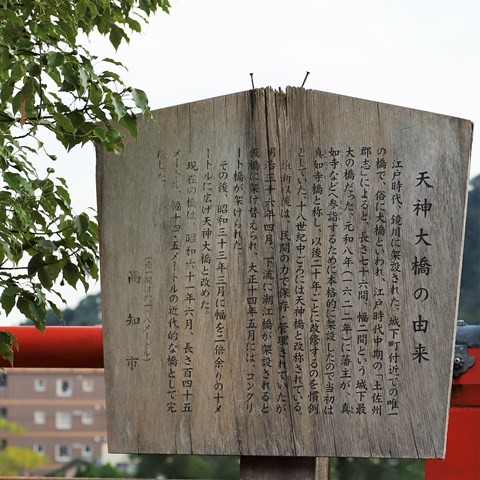 天神大橋の由来
江戸時代、鏡川に架設された、城下町付近での唯一
の橋で、俗に大橋といわれ、江戸時代中期の「土佐州
郡志」によると、長さ七十六間、幅二間という城下最
大の橋だった。元和八年(一六二二年)に藩主が、真
如寺などへ参詣するために本格的に架設したので当初は
真如寺橋と称し、以後二十年ごとに改修するのを慣例
としていた。十八世紀中ごろには天神橋と改称されている。
維新以後は、民間の力で保存・管理されていたが
明治三十六年四月、下流に潮江橋が架設されると
板橋に架け替えられ、大正十四年五月にはコンクリ
ート橋が架けられた。
その後、昭和三十三年三月に幅を二倍余りの十メ
ートルに広げ天神大橋と改めた。
現在の橋は、昭和六十一年六月、長さ百四十五
メートル、幅十四・五メートルの近代的な橋として完
成した。
(注一間は約一・八メートル)
高知市